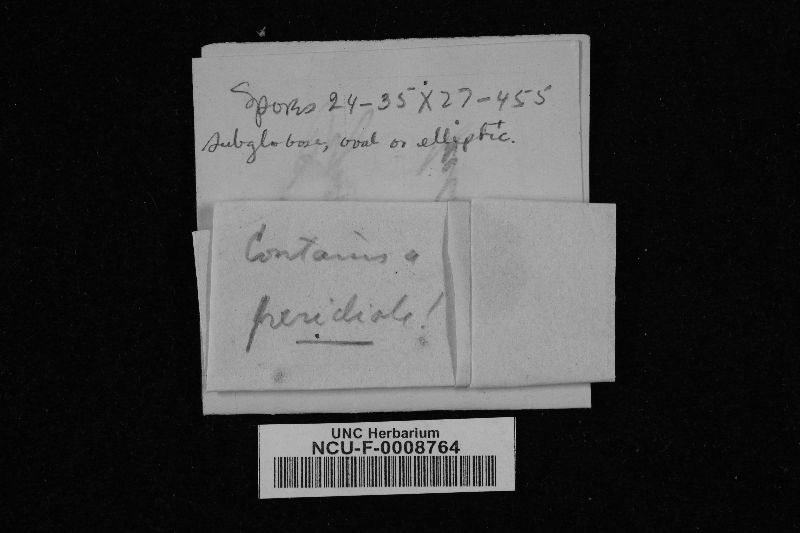 Spores 24-35 X 27-455
subglobose, oval or elliptic.
Contains a
peridiole!
UNC Herbarium
NCU-F-0008764